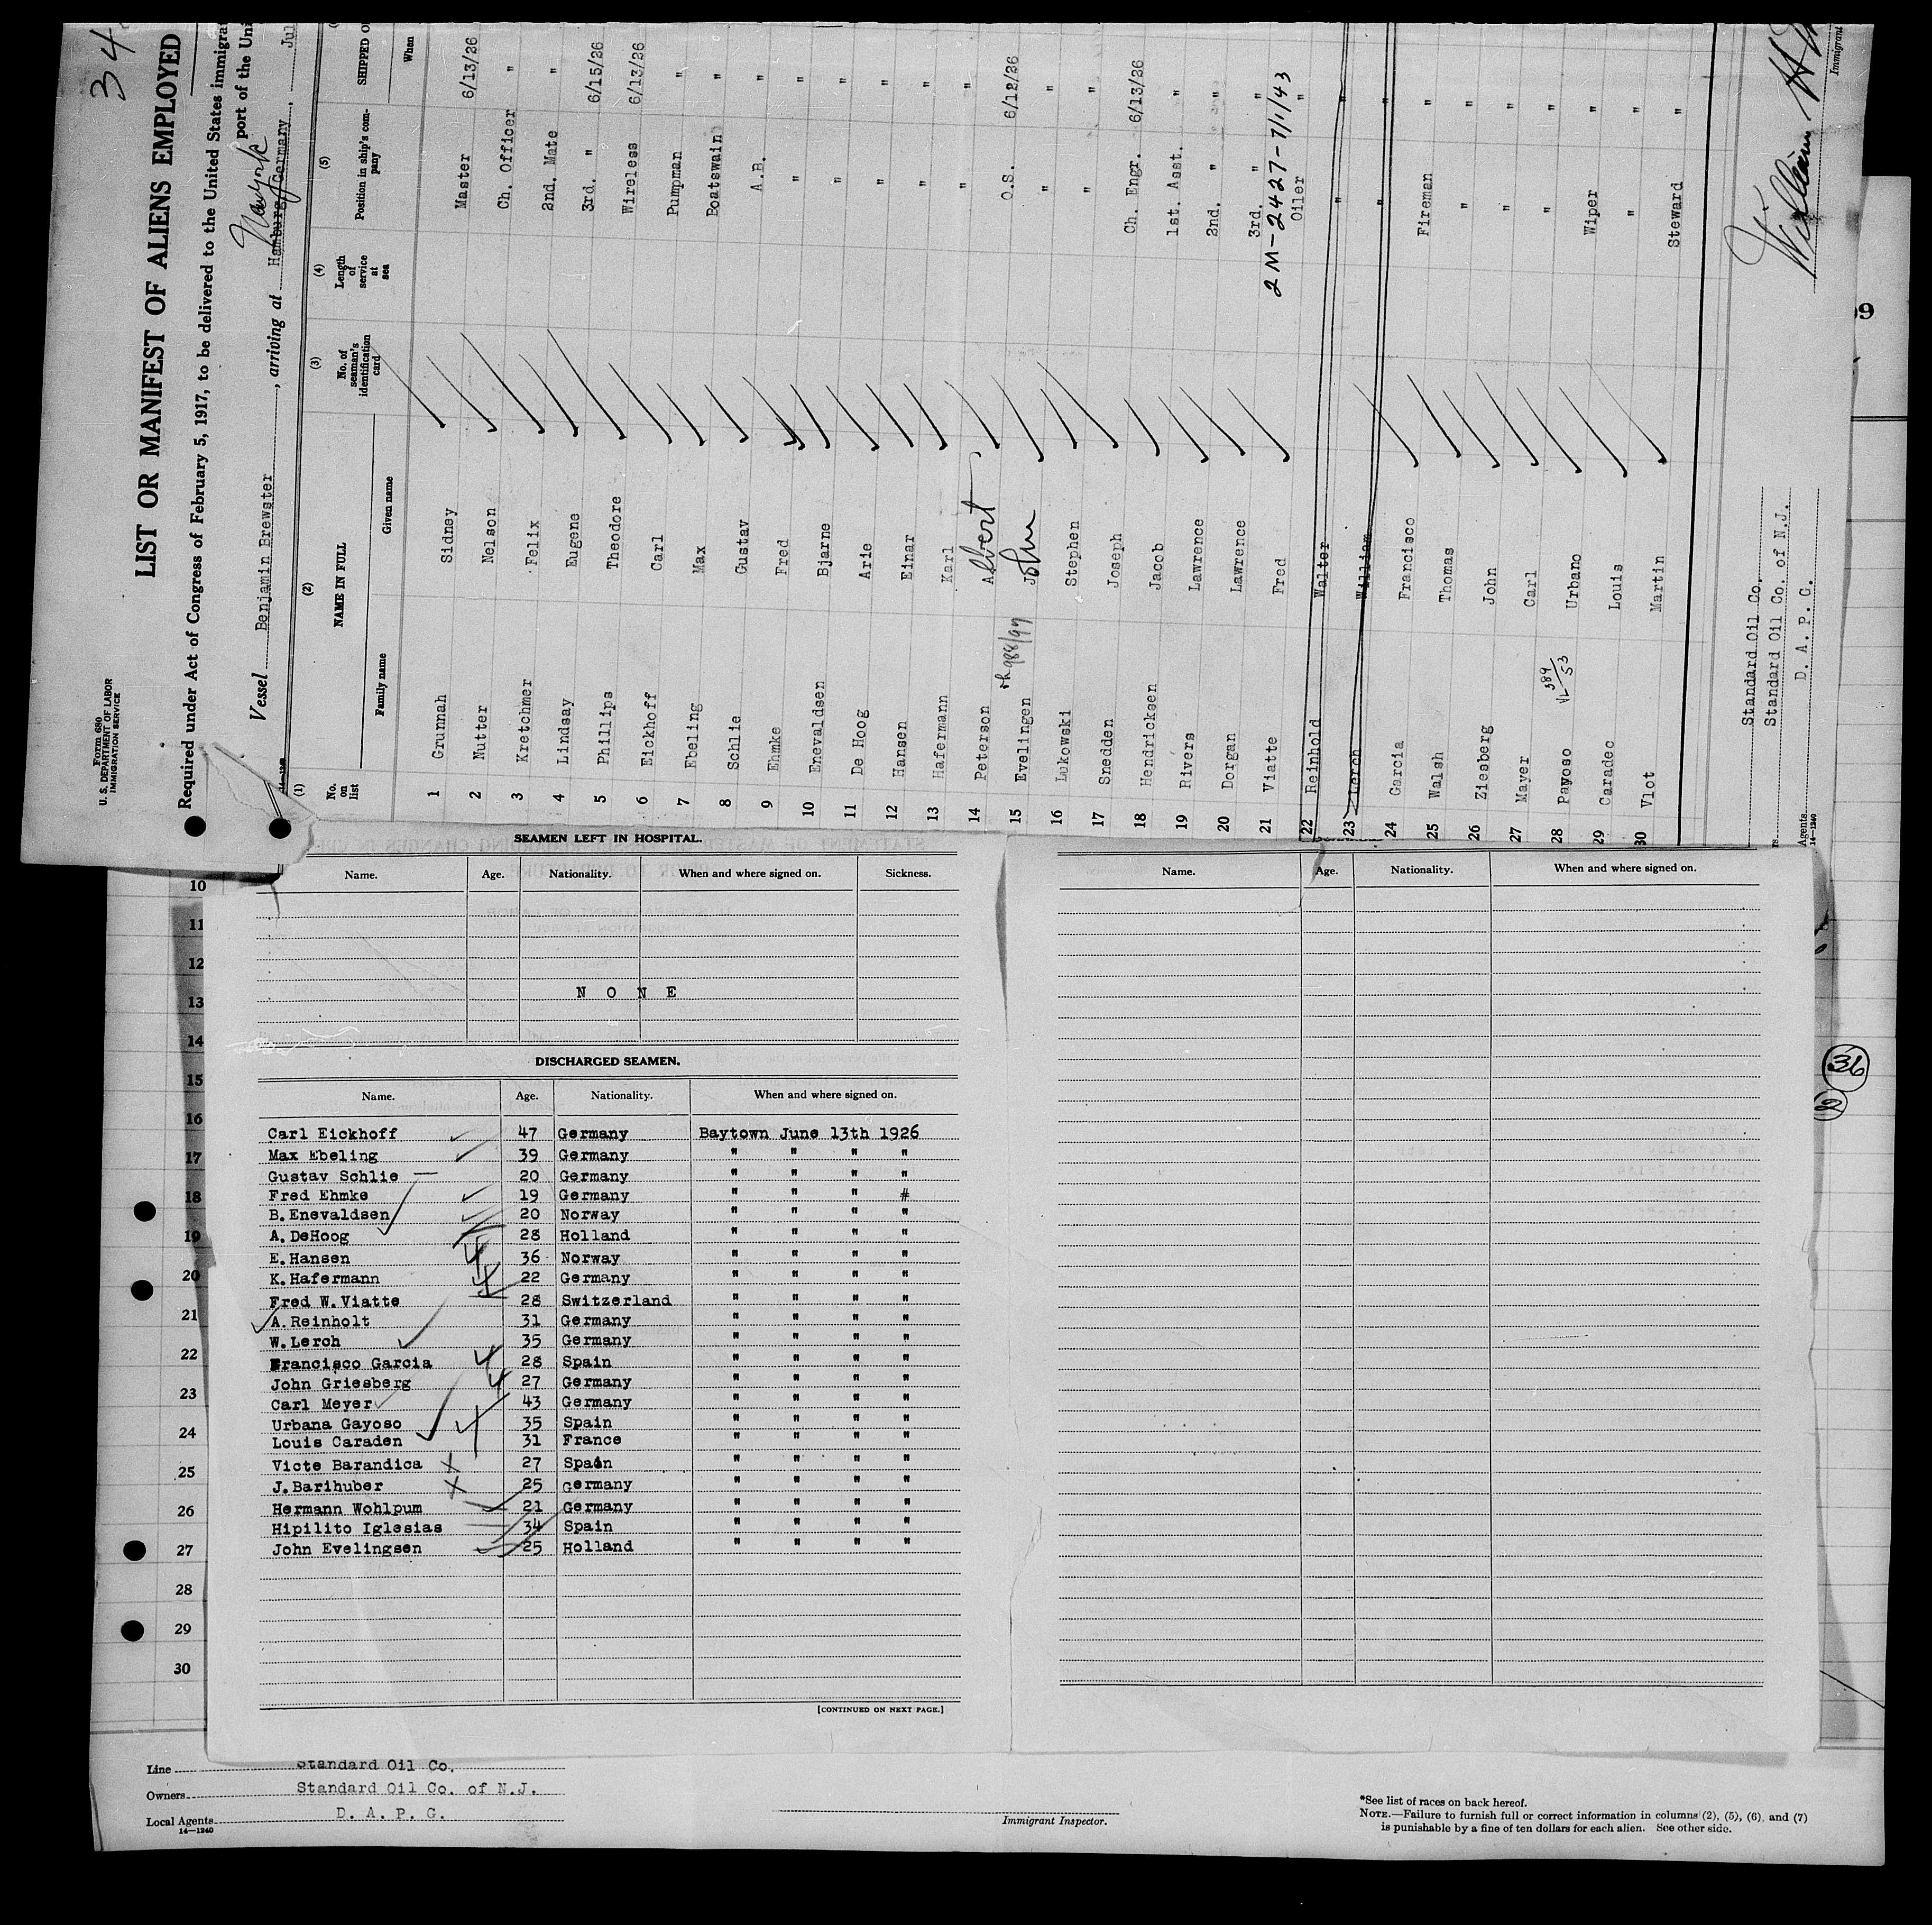 34
Form 680
U. S. DEPARTMENT OF LABOR
IMMIGRATION SERVICE
LIST OR MANIFEST OF ALIENS EMPLOYED
Required under Act of Congress of February 5, 1917, to be delivered to the United States immigra
port of the Uni
Vessel Benjamin Brewster, arriving at Hamburg, Germany, Jul
(1) (2) (3) (4) (5)
No. on list NAME IN FULL No. of seaman's identification card Length of service at sea Position in ship's company SHIPPED O
Family name Given name When
1 Grunnah Sidney Master 6/13/26
2 Nutter Nelson Ch. Officer "
3 Kretchmer Felix 2nd. Mate "
4 Lindsay Eugene 3rd. " 6/15/26
5 Phillips Theodore Wireless 6/13/26
6 Eickhoff Carl Pumpman "
7 Ebeling Max Boatswain "
8 Schlie Gustav A.B. "
9 Ehmke Fred " "
10 Enevaldsen Bjarne " "
11 De Hoog Arie " "
12 Hansen Einar " "
13 Hafermann Karl " "
14 Peterson Albert O.S. 6/12/26
15 Evelingen John " "
16 Lukowski Stephen " "
17 Snedden Joseph Ch. Engr. 6/13/26
18 Hendricksen Jacob 1st. Asst. "
19 Rivers Lawrence 2nd. " "
20 Dorgan Lawrence 3rd. " "
21 Viatte Fred Oiler "
2M-2427-7/1/43
22 Reinhold Walter " "
23 Lerch William " "
24 Garcia Francisco Fireman "
25 Walsh Thomas " "
26 Ziesberg John " "
27 Mayer Carl " "
28 Payoso Urbano Wiper "
29 Caradec Louis " "
30 Vlot Martin Steward "
Standard Oil Co.
Standard Oil Co. of N.J.
Agents. D. A. P. G.
14—1240
William H
Immigrant
SEAMEN LEFT IN HOSPITAL.
Name. Age. Nationality. When and where signed on. Sickness.
N O N E
DISCHARGED SEAMEN.
Name. Age. Nationality. When and where signed on.
Carl Eickhoff 47 Germany Baytown June 13th 1926
Max Ebeling 39 Germany " " " "
Gustav Schlie 20 Germany " " " "
Fred Ehmke 19 Germany " " " #
B.Enevaldsen 20 Norway " " " "
A.DeHoog 28 Holland " " " "
E.Hansen 36 Norway " " " "
K.Hafermann 22 Germany " " " "
Fred W.Viatte 28 Switzerland " " " "
A.Reinholt 31 Germany " " " "
W.Lerch 35 Germany " " " "
Francisco Garcia 28 Spain " " " "
John Griesberg 27 Germany " " " "
Carl Meyer 43 Germany " " " "
Urbana Gayoso 35 Spain " " " "
Louis Caraden 31 France " " " "
Victe Barandica 27 Spain " " " "
J.Barihuber 25 Germany " " " "
Hermann Wohlpum 21 Germany " " " "
Hipilito Iglesias 34 Spain " " " "
John Evelingsen 25 Holland " " " "
[CONTINUED ON NEXT PAGE.]
Name. Age. Nationality. When and where signed on.
10
11
12
13
14
15
16
17
18
19
20
21
22
23
24
25
26
27
28
29
30
36
2
Line Standard Oil Co.
Owners Standard Oil Co. of N.J.
Local Agents D. A. P. G.
14—1240
Immigrant Inspector.
*See list of races on back hereof.
NOTE.—Failure to furnish full or correct information in columns (2), (5), (6), and (7)
is punishable by a fine of ten dollars for each alien. See other side.